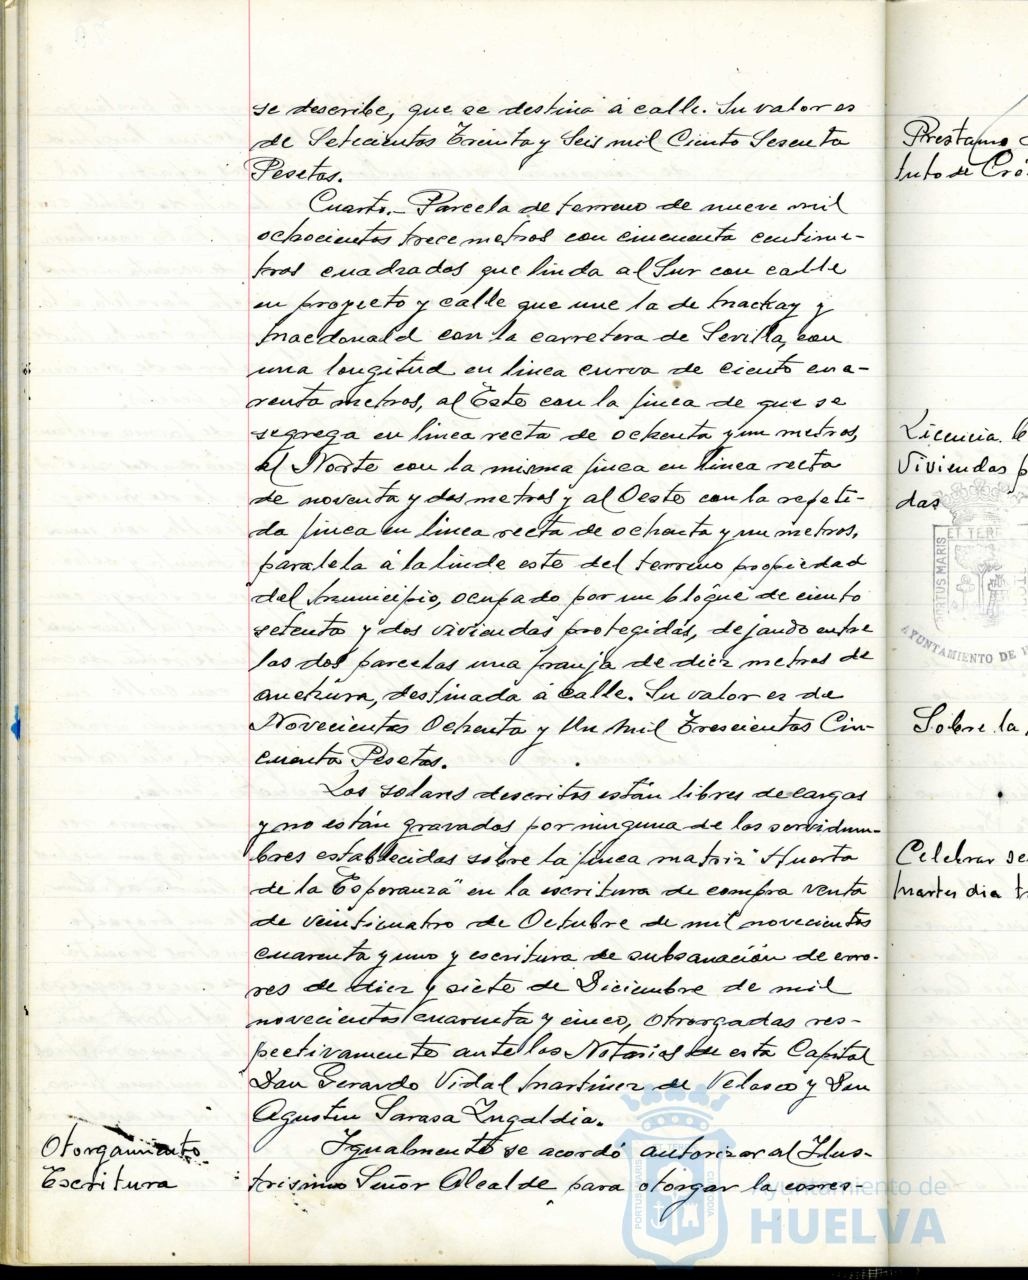 se describe, que se destina á calle. Su valor es
de Setecientos Treinta y Seis mil Ciento Sesenta
Pesetas.
Cuarto.- Parcela de terreno de nueve mil
ochocientos trece metros con cincuenta centime-
tros cuadrados que linda al Sur con calle
en proyecto y calle que une la de Mackay y
Macdonald con la carretera de Sevilla, con
una longitud en linea curva de ciento cua-
renta metros, al Este con la finca de que se
segrega en linea recta de ochenta y un metros,
al Norte con la misma finca en linea recta
de noventa y dos metros y al Oeste con la repeti-
da finca en linea recta de ochenta y un metros,
paralela á la linde este del terreno propiedad
del Municipio, ocupado por un bloque de ciento
setenta y dos viviendas protegidas, dejando entre
las dos parcelas una franja de diez metros de
anchura, destinada á calle. Su valor es de
Novecientos Ochenta y Un Mil Trescientos Cin-
cuenta Pesetas.
Los solares descritos están libres de cargas
y no están gravados por ninguna de las servidum-
bres establecidas sobre la finca matriz "Huerta
de la Esperanza" en la escritura de compra venta
de veinticuatro de Octubre de mil novecientos
cuarenta y uno y escritura de subsanación de erro-
res de diez y siete de Diciembre de mil
novecientos cuarenta y cinco, otorgadas res-
pectivamente ante los Notarios de esta Capital
Don Gerardo Vidal Martinez de Velasco y Don
Agustin Sarasa Zugaldia.
Otorgamiento
Escritura
Igualmente se acordó autorizar al Ilus-
trisimo Señor Alcalde para otorgar la corres-
Prestamo
tuto de Cré
Licencia
Viviendas p
das
PORTUS MARIS
ET TERR
AYUNTAMIENTO DE
Sobre la
Celebrar se
Martes dia
PORTUS MARIS
ET TERR
CUSTODIA
Ayuntamiento de
HUELVA